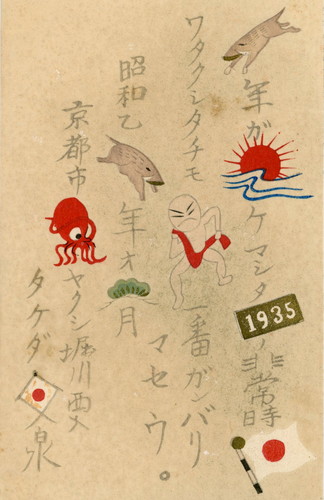 年が ケマシタ 1935 ノ非常時
ワタクシタチモ 一番ガンバリ
マセウ。
昭和乙 年オ 月
京都市 ヤクシ堀川西入
タケダ 泉